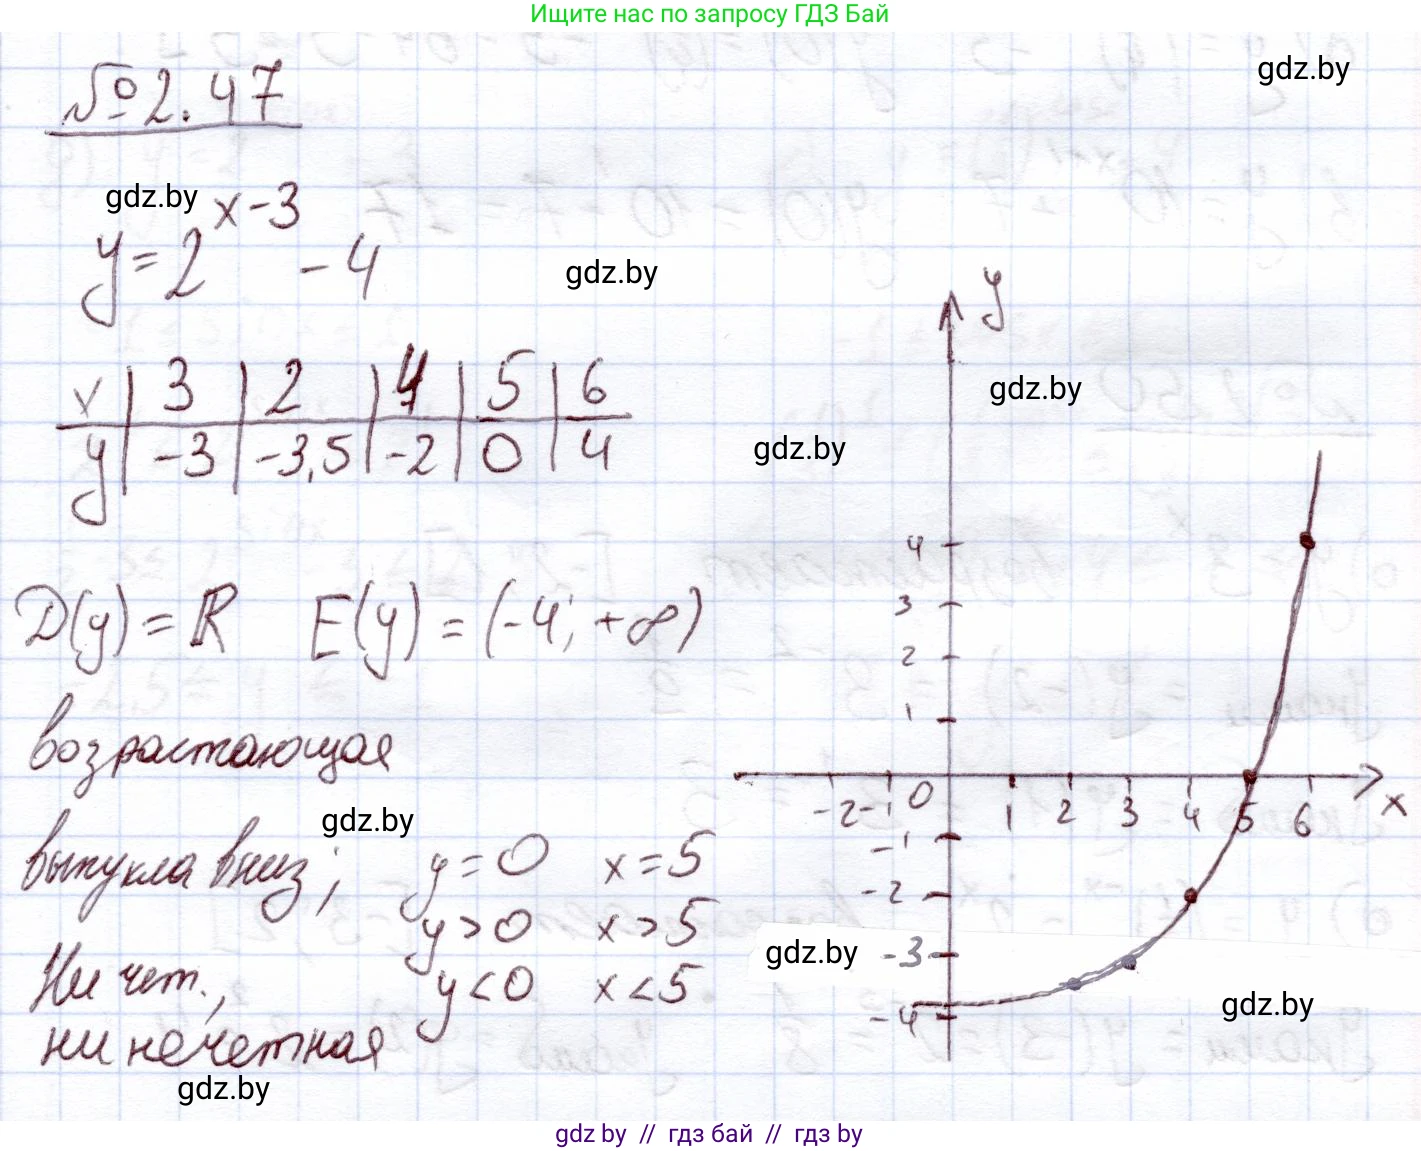 Ищите нас по запросу ГДЗ Бай
gdz.by
№2.47
gdz.by
y=2^{x-3} - 4
gdz.by
y
gdz.by
x | 3 | 2 | 4 | 5 | 6
y | -3 | -3,5 | -2 | 0 | 4
gdz.by
4
3
2
1
D(y) = R E(y) = (-4; +∞)
возрастающая
-2 -1 0 1 2 3 4 5 6 x
gdz.by
-1
-2
-3
-4
выпукла вниз; y=0 x=5
y>0 x>5
y<0 x<5
gdz.by
gdz.by
Ни чет.,
ни нечетная
gdz.by
gdz.by // гдз бай // gdz by